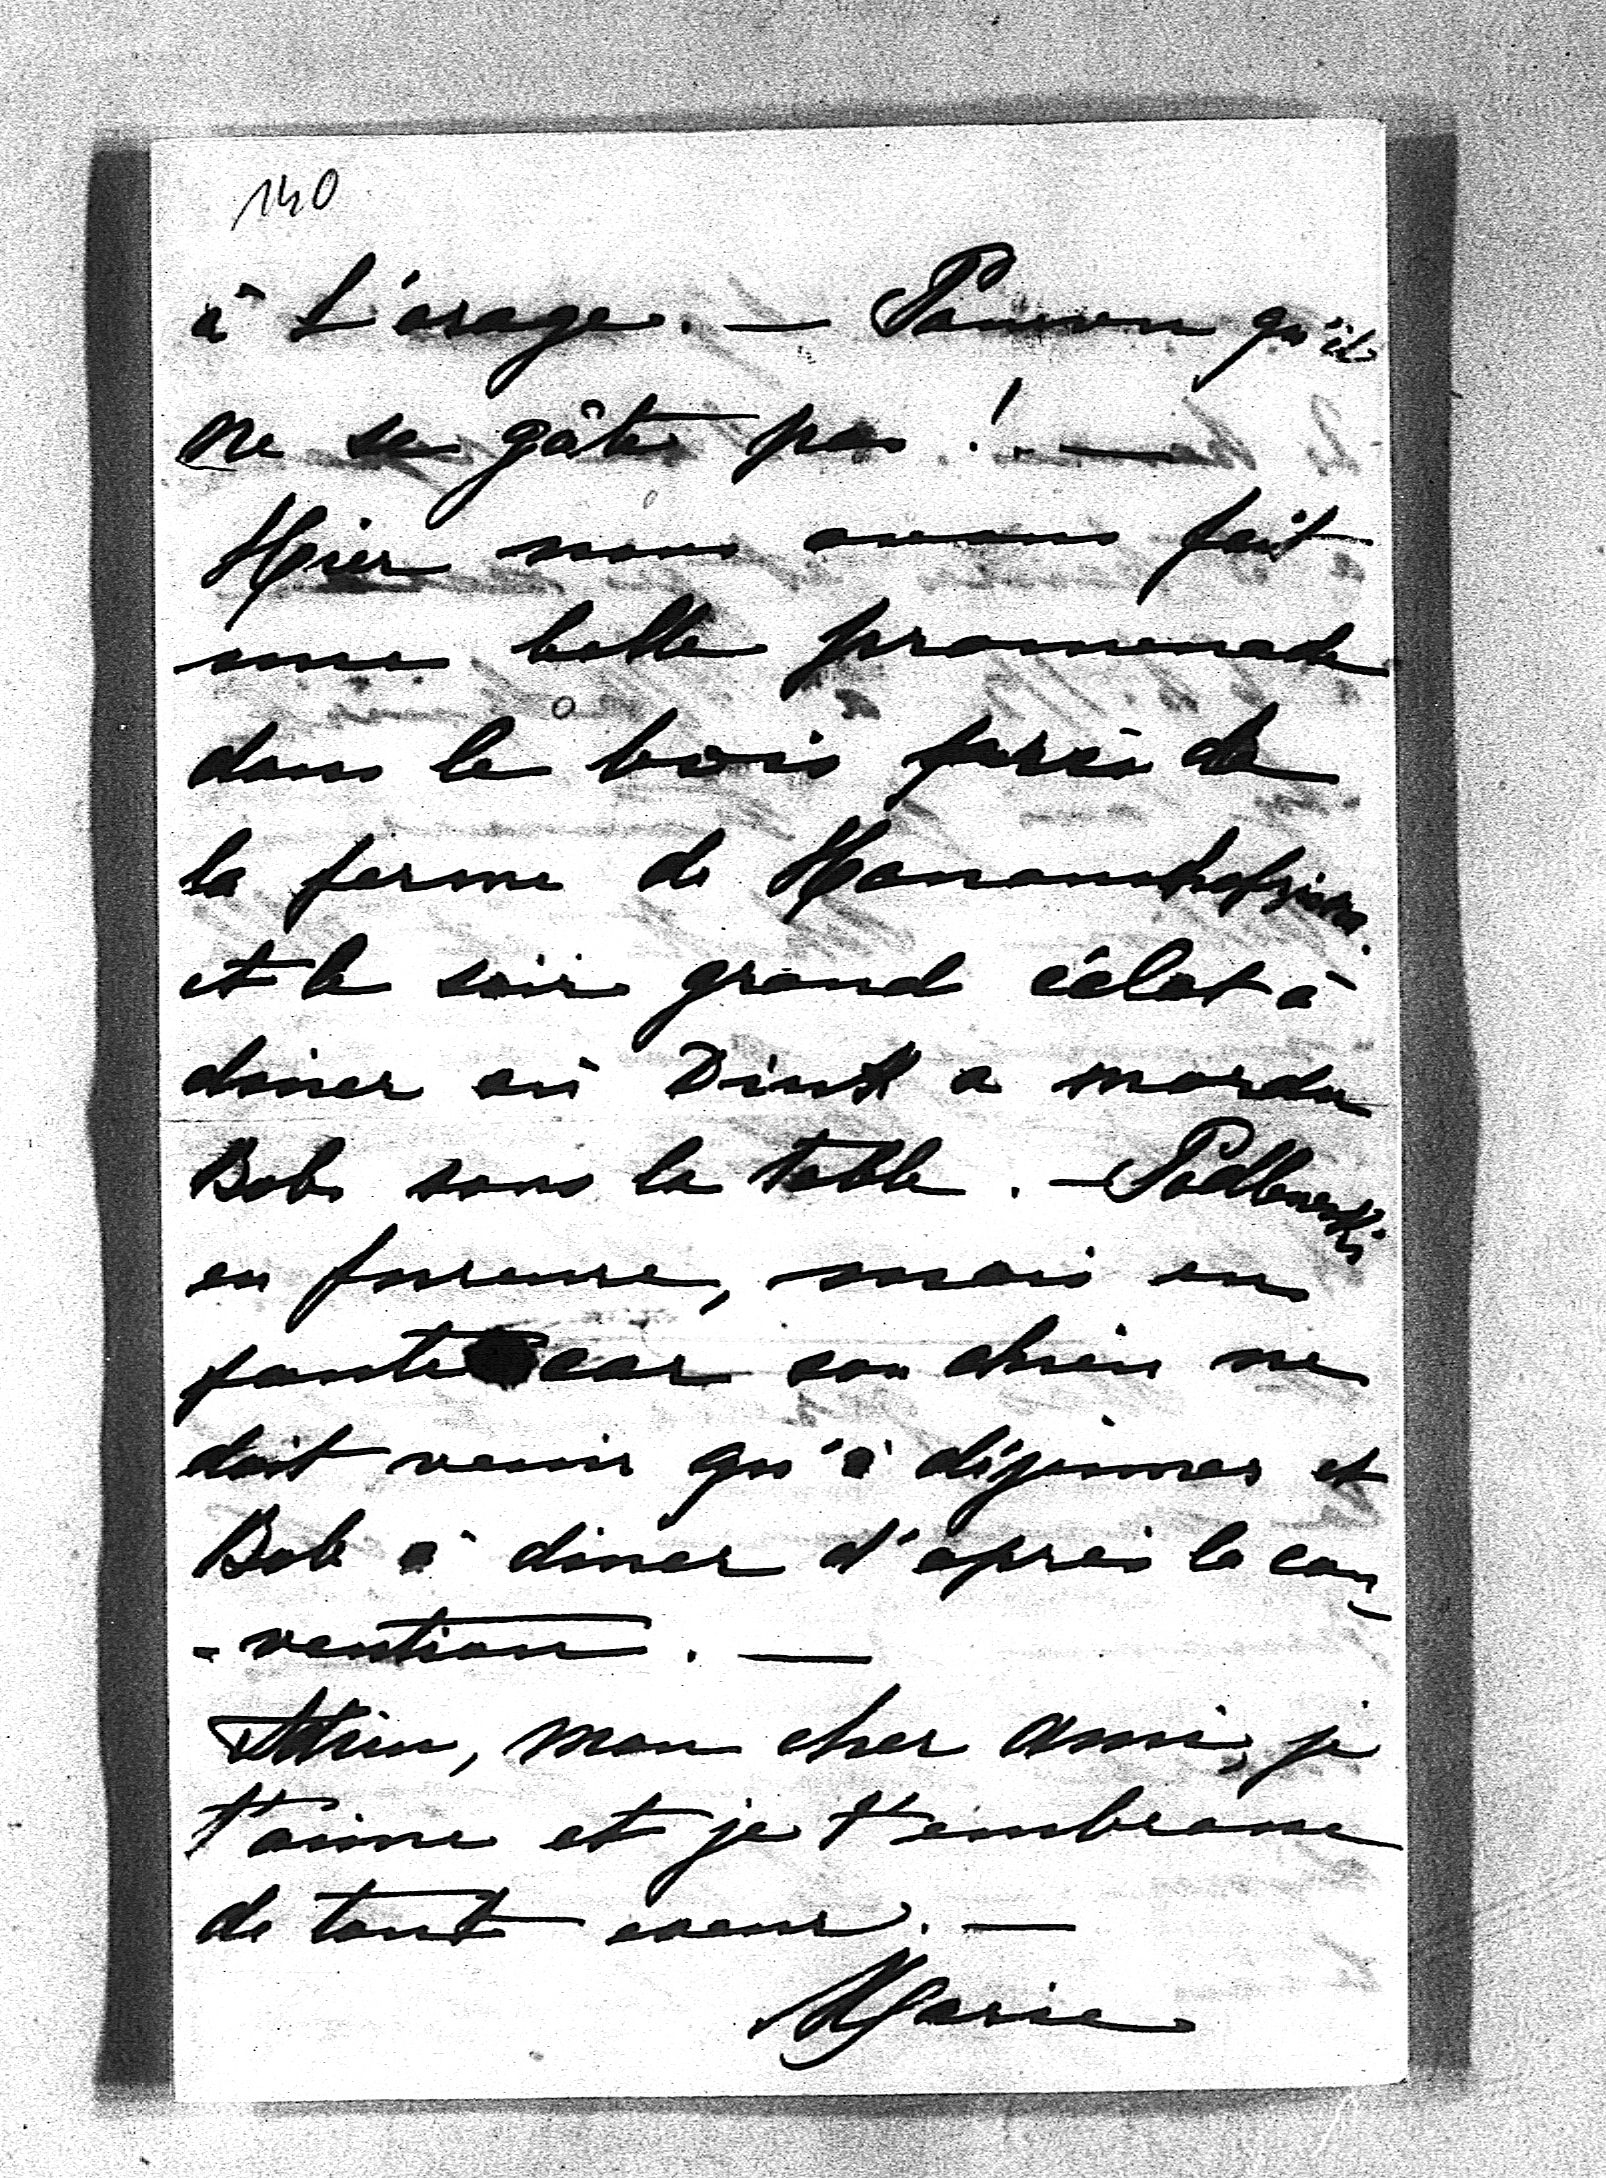 140
à l'orage. — Pourvu qu'il
ne se gâte pas ! —
Hier nous avons fait
une belle promenade
dans le bois près de
la ferme de
et le soir grand éclat à
diner où Dink a mordu
Bob sous la table. —
en fureure, mais en
faute car son chien ne
doit venir qu'à déjeuner et
Bob à diner d'après la con-
-vention. —
Adieu, mon cher ami, je
t'aime et je t'embrasse
de tout coeur. —
Marie